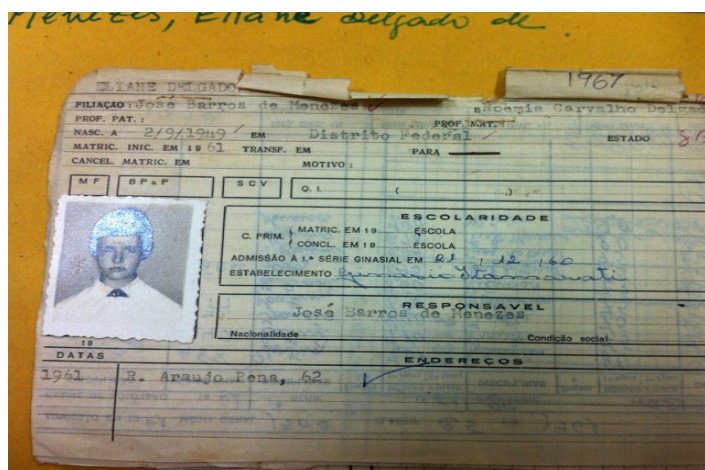 Menezes, Eliane Delgado de.
1967
ELIANE DELGADO
FILIAÇÃO: José Barros de Menezes E Noemia Carvalho Delga
PROF. PAT.: PROF. MAT.:
NASC. A 2/9/1949 EM Distrito Federal ESTADO
MATRIC. INIC. EM 19 61 TRANSF. EM PARA
CANCEL. MATRIC. EM MOTIVO:
M F B P a P S C V Q. I. ( )
ESCOLARIDADE
C. PRIM. MATRIC. EM 19 ESCOLA
CONCL. EM 19 ESCOLA
ADMISSÃO À 1.ª SÉRIE GINASIAL EM 21 , 12 , 60
ESTABELECIMENTO Ginásio Itamarati
RESPONSAVEL
José Barros de Menezes
Nacionalidade Condição social
19
DATAS ENDEREÇOS
1961 R. Araujo Pena, 62